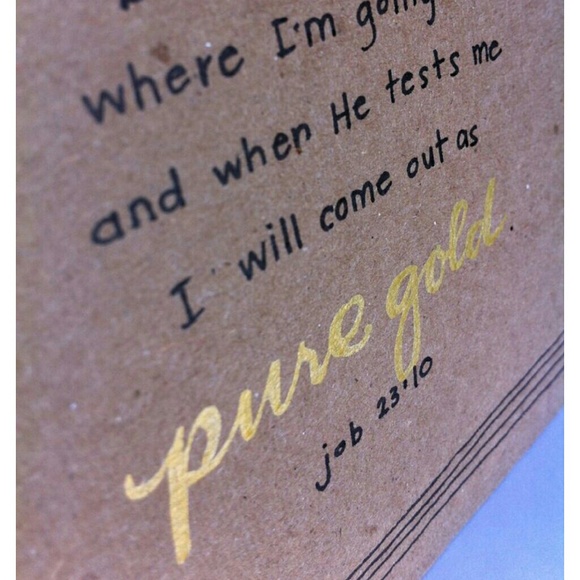 where I'm going
and when He tests me
I will come out as
pure gold.
job 23:10